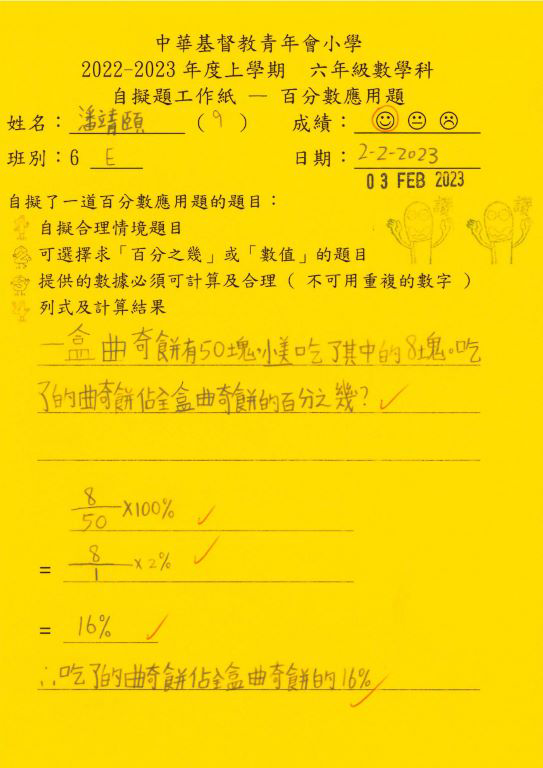 中華基督教青年會小學
2022-2023 年度上學期 六年級數學科
自擬題工作紙 — 百分數應用題
姓名：潘靖頤 ( 9 ) 成績：
班別：6 E 日期：2-2-2023
03 FEB 2023
自擬了一道百分數應用題的題目：
自擬合理情境題目
可選擇求「百分之幾」或「數值」的題目
提供的數據必須可計算及合理 ( 不可用重複的數字 )
列式及計算結果
一盒曲奇餅有50塊，小美吃了其中的8塊。吃
了的曲奇餅佔全盒曲奇餅的百分之幾？
8/50 ×100%
= 8/1 ×2%
= 16%
∴吃了的曲奇餅佔全盒曲奇餅的16%